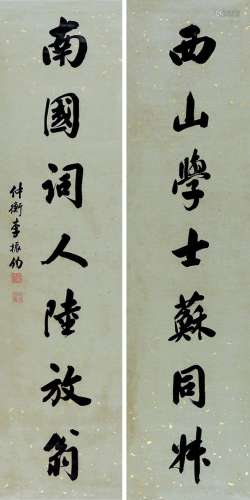 西山學士蘇同叔
南國詞人陸放翁
仲衡李振鈞